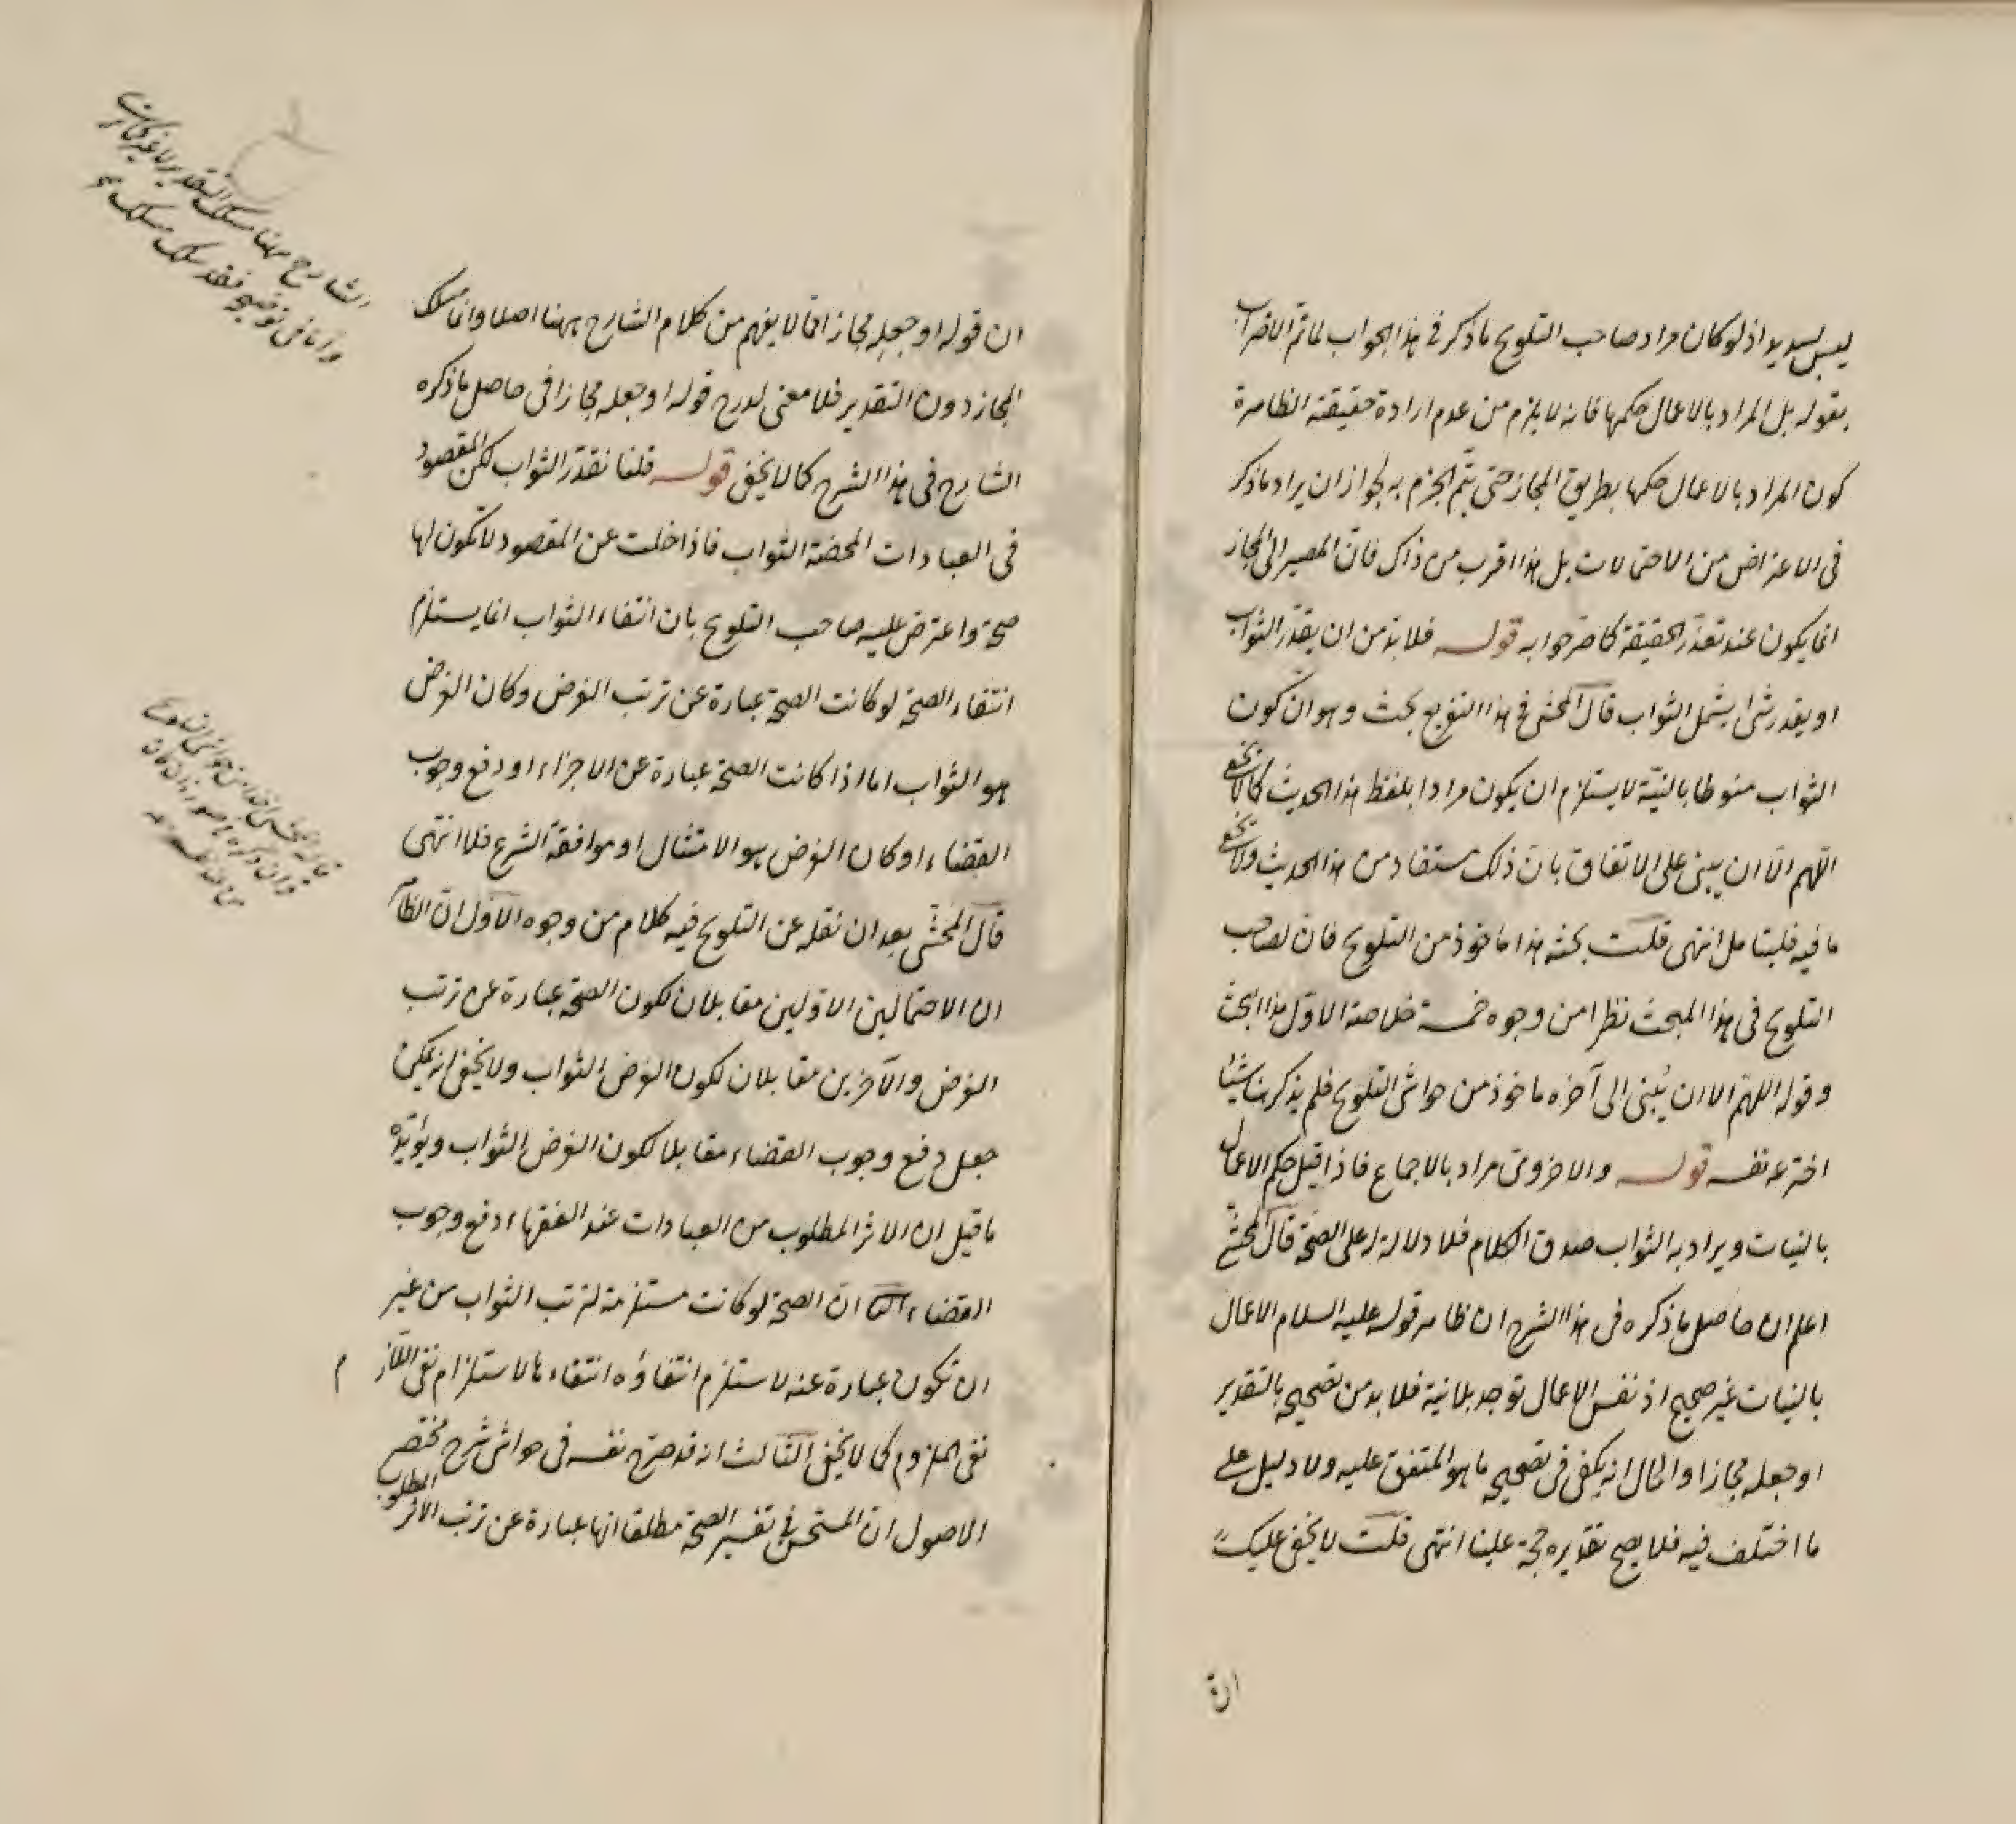 ليس بسديد اذ لو كان مراد صاحب التلويح ما ذكر فى هذا الجواب لما تم الاضراب
بقوله بل المراد بالاعمال حكمها فانه لا يلزم من عدم ارادة حقيقته الظاهرة
كون المراد بالاعمال حكمها بطريق المجاز حتى يتم الجزم به لجواز ان يراد ما ذكر
فى الاعتراض من الاحتمالات بل هذا اقرب من ذاك فان المصير الى المجاز
انما يكون عند تعذر الحقيقة كما مر جوابه قوله فلا بد من ان يقدر الثواب
او يقدر شئ يشمل الثواب قال المحشى فى هذا التفريع بحث وهو ان كون
الثواب منوطا بالنية لا يستلزم ان يكون مرادا بلفظ هذا الحديث كما لا يخفى
اللهم الا ان يبنى على الاتفاق بان ذلك مستفاد من هذا الحديث ولا يخفى
ما فيه فليتامل انتهى قلت بحثه هذا ماخوذ من التلويح فان لصاحب
التلويح فى هذا المبحث نظرا من وجوه خمسة خلاصة الاول هذا البحث
وقوله اللهم الا ان يبنى الى آخره ماخوذ من حواشى التلويح فلم يذكر هنا شيئا
اخترعه نفسه قوله والاخروى مراد بالاجماع فاذا قيل حكم الاعمال
بالنيات ويراد به الثواب صدق الكلام فلا دلالة له على الصحة قال المحشى
اعلم ان حاصل ما ذكره فى هذا الشرح ان ظاهر قوله عليه السلام الاعمال
بالنيات غير صحيح اذ نفس الاعمال توجد بلا نية فلا بد من تصحيحه بالتقدير
او جعله مجازا والحال انه يكفى فى تصحيحه ما هو المتفق عليه ولا دليل على
ما اختلف فيه فلا يصح تقديره حجة علينا انتهى قلت لا يخفى عليك
ان
ان قوله او جعله مجازا مما لا يفهم من كلام الشارح ههنا اصلا وانما سلك
المجاز دون التقدير فلا معنى لدرج قوله او جعله مجازا فى حاصل ما ذكره
الشارح فى هذا الشرح كما لا يخفى قوله قلنا نقدر الثواب لكن المقصود
فى العبادات المحضة الثواب فاذا خلت عن المقصود لا تكون لها
صحة واعترض عليه صاحب التلويح بان انتفاء الثواب انما يستلزم
انتفاء الصحة لو كانت الصحة عبارة عن ترتب الغرض وكان الغرض
هو الثواب اما اذا كانت الصحة عبارة عن الاجزاء او دفع وجوب
القضاء او كان الغرض هو الامتثال او موافقة الشرع فلا انتهى
قال المحشى بعد ان نقله عن التلويح فيه كلام من وجوه الاول ان الظاهر
ان الاحتمالين الاولين مقابلان لكون الصحة عبارة عن ترتب
الغرض والآخرين مقابلان لكون الغرض الثواب ولا يخفى انه يمكن
جعل دفع وجوب القضاء مقابلا لكون الغرض الثواب ويؤيده
ما قيل ان الاثر المطلوب من العبادات عند الفقهاء دفع وجوب
القضاء الثانى ان الصحة لو كانت مستلزمة لترتب الثواب من غير
ان تكون عبارة عنه لاستلزم انتفاؤه انتفاءها لاستلزام نفى اللازم
نفى الملزوم كما لا يخفى الثالث انه قد صرح نفسه فى حواشى شرح مختصر
الاصول ان المستحسن فى تفسير الصحة مطلقا انها عبارة عن ترتب الاثر المطلوب
الشارح ههنا مسلك التقدير
واما فى توضيحه فقد سلك مسلك